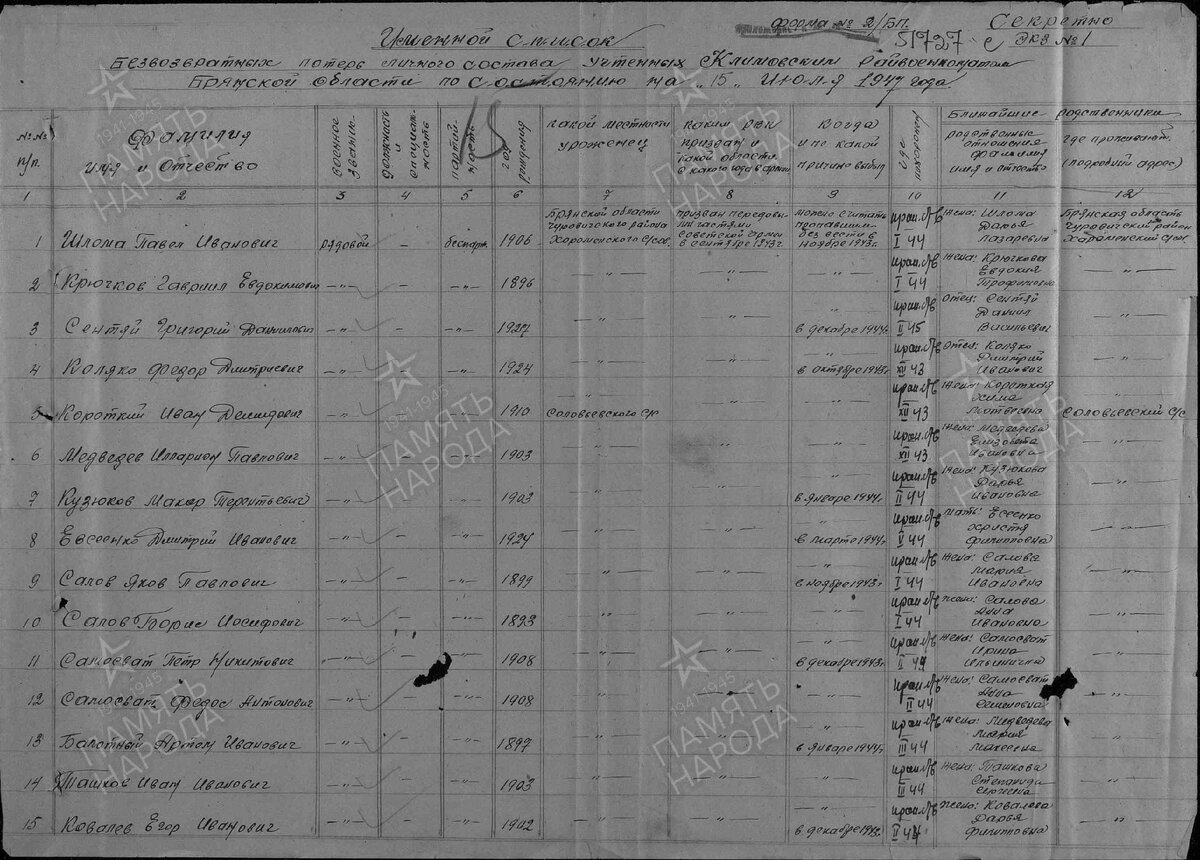 Форма № 2/БП.
Секретно
51727 с
Экз №1
Именной список
Безвозвратных потерь личного состава учтенных Климовским райвоенкоматом
Брянской области по состоянию на "15" июля 1947 года.
№№ п/п. | Фамилия имя и отчество | военное звание | должность и специальность | партийность | год рождения | какой местности уроженец | каким РВК призван и какой области с какого года в армии | когда и по какой причине выбыл | где | Ближайшие родственники
родственные отношения фамилия имя и отчество | где проживают (подробный адрес)
1 2 3 4 5 6 7 8 9 10 11 12
1 Шлома Павел Иванович рядовой - беспарт. 1906 Брянской области Чуровичского района Хоромен­ского с/сов. призван передовыми частями Советской Армии в сентябре 1943г. можно считать пропавшим без вести в ноябре 1943г. I 44 жена: Шлома Дарья Лазаревна Брянская область Чуровичский район Хароменский с/сов
2 Крючков Гавриил Евдокимович -"- - -"- 1896 -"- -"- " I 44 жена: Крючкова Евдокия Трофимовна -"-
3 Сентяй Григорий Даниилович -"- - -"- 1927 -"- -"- " в декабре 1944г. II 45 отец: Сентяй Даниил Васильевич -"-
4 Коляко Федор Дмитриевич -"- - -"- 1924 -"- -"- " в октябре 1943г. XII 43 отец: Коляко Дмитрий Иванович -"-
5 Короткий Иван Демидович -"- - -"- 1910 " Соловьевского с/с -"- " XII 43 жена: Короткая Хима Матвеевна " Соловьевский с/с
6 Медведев Илларион Павлович -"- - -"- 1903 -"- -"- " XII 43 жена: Медведева Елизовета Ивановна -"-
7 Кузюков Макар Терентьевич -"- - -"- 1903 -"- -"- " в январе 1944г. II 44 жена: Кузюкова Дарья Ивановна -"-
8 Евсеенко Дмитрий Иванович -"- - -"- 1924 -"- -"- " в марте 1944г. II 44 мать: Евсеенко Христя Филипповна -"-
9 Салов Яков Павлович -"- - -"- 1899 -"- -"- " в ноябре 1943г. I 44 жена: Салова Мария Ивановна -"-
10 Салов Борис Иосифович -"- - -"- 1893 -"- -"- " I 44 жена: Салова Анна Ивановна -"-
11 Самосват Петр Никитович -"- - -"- 1908 -"- -"- " в декабре 1943г. II 44 жена: Самосват Ирина Ильинична -"-
12 Самосват Федос Антонович -"- - -"- 1908 -"- -"- " II 44 жена: Самосват Анна Семеновна -"-
13 Балотный Артем Иванович -"- - -"- 1897 -"- -"- " в январе 1944г. III 44 жена: Медведева Мария Макеевна -"-
14 Пашков Иван Иванович -"- - -"- 1903 -"- -"- " III 44 жена: Пашкова Степанида Сергеевна -"-
15 Ковалев Егор Иванович -"- - -"- 1902 -"- -"- " в декабре 1943г. II 44 жена: Ковалева Дарья Филипповна -"-
1941-1945 ПАМЯТЬ НАРОДА
1941-1945 ПАМЯТЬ НАРОДА
1941-1945 ПАМЯТЬ НАРОДА
1941-1945 ПАМЯТЬ НАРОДА
1941-1945 ПАМЯТЬ НАРОДА